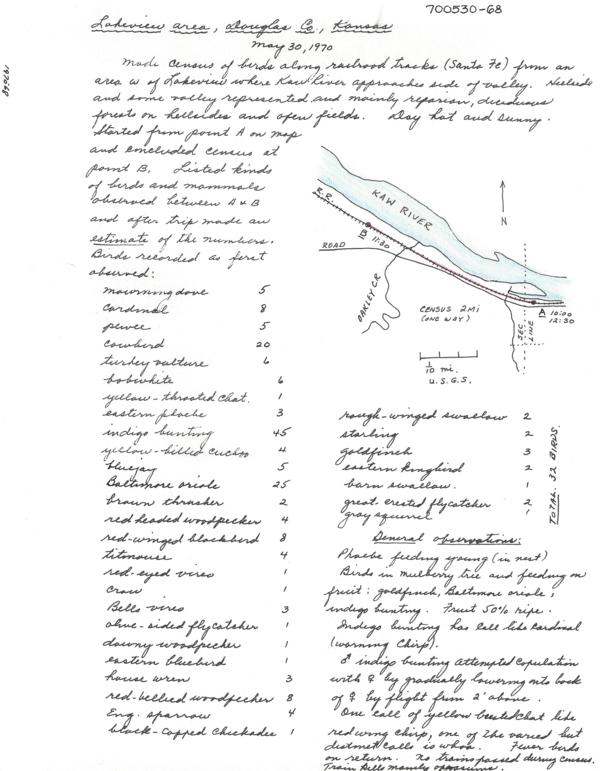 700530-68
Lakeview area, Douglas Co., Kansas
May 30, 1970
Made census of birds along railroad tracks (Santa Fe) from an
area w of Lakeview where Kaw River approaches side of valley. Hillside
and some valley represented and mainly riparian, deciduous
forests on hillsides and open fields. Day hot and sunny.
Started from point A on map
and concluded census at
point B. Listed kinds
of birds and mammals
observed between A & B
and after trip made an
estimate of the numbers.
Birds recorded as first
observed:
mourning dove 5
cardinal 8
pewee 5
cowbird 20
turkey vulture 6
bobwhite 6
yellow-throated chat. 1
eastern phoebe 3
indigo bunting 45
yellow-billed cuckoo 4
bluejay 5
Baltimore oriole 25
brown thrasher 2
red headed woodpecker 4
red-winged blackbird 8
titmouse 4
red-eyed vireo 1
crow 1
Bells vireo 3
olive-sided flycatcher 1
downy woodpecker 1
eastern bluebird 1
house wren 3
red-bellied woodpecker 8
Eng. sparrow 4
black-capped chickadee 1
KAW RIVER
R.R.
N
B
11:30
ROAD
OAKLEY CR
CENSUS 2 MI
(ONE WAY)
A 10:00
12:30
SEC
LINE
1/10 mi.
U.S.G.S.
rough-winged swallow 2
starling 2
goldfinch 3
eastern kingbird 2
barn swallow. 1
great crested flycatcher 2
gray squirrel 1
TOTAL 32 BIRDS.
General observations:
Phoebe feeding young (in nest)
Birds in mulberry tree and feeding on
fruit: goldfinch, Baltimore oriole,
indigo bunting. Fruit 50% ripe.
Indigo bunting has call like cardinal
(warning chirp).
♂ indigo bunting attempted copulation
with ♀ by gradually lowering onto back
of ♀ by flight from 2' above.
One call of yellow breasted chat like
redwing chirp, one of the varied but
distinct calls is whoa. Fewer birds
on return. No trains passed during census.
Train kills mainly opossums.